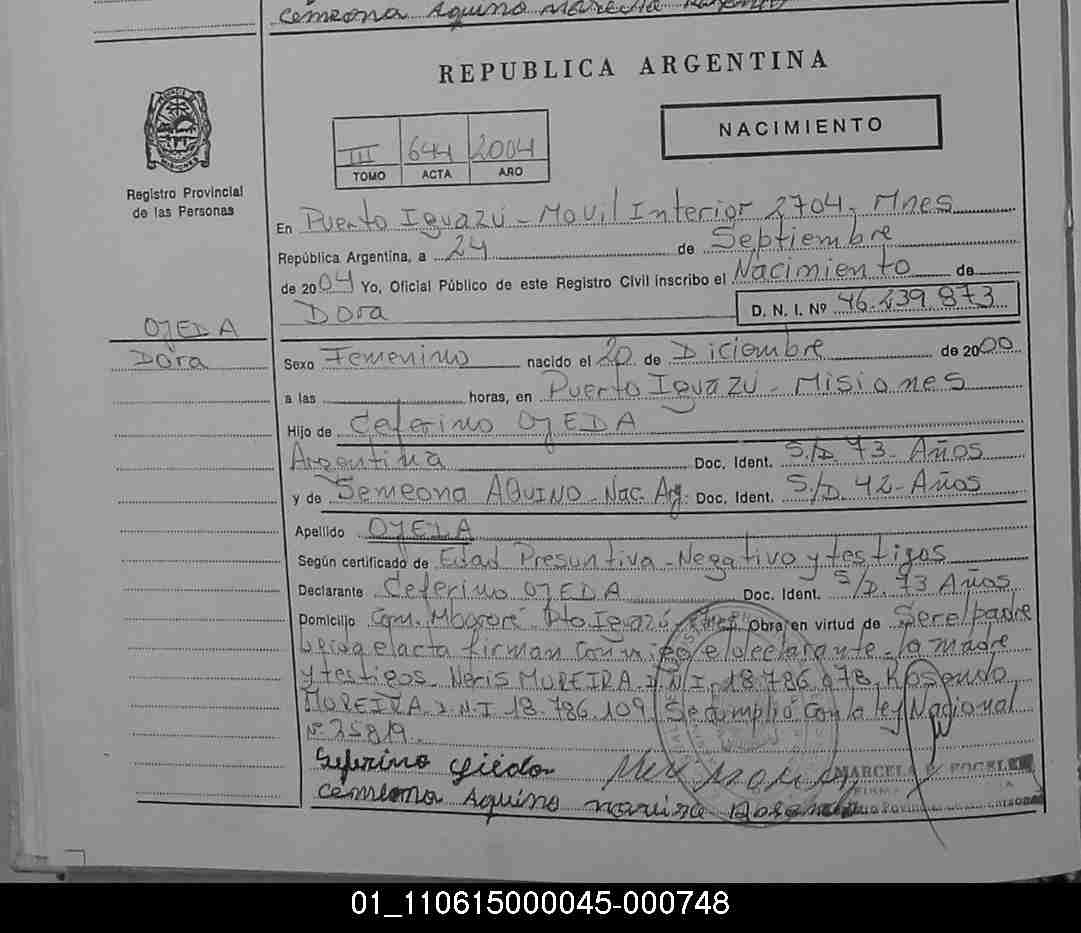 Cemeona Aquino
REPUBLICA ARGENTINA
NACIMIENTO
III 644 2004
TOMO ACTA AÑO
Registro Provincial
de las Personas
En Puerto Iguazú - Movil Interior 2704. Mnes
República Argentina, a 24 de Septiembre
de 2004 Yo, Oficial Público de este Registro Civil inscribo el Nacimiento de
Dora D. N. I. Nº 46.239.873
OJEDA
Dora
Sexo Femenino nacido el 20 de Diciembre de 2000
a las horas, en Puerto Iguazú - Misiones
Hijo de Ceferino OJEDA
Argentina Doc. Ident. S/D. 73 - Años
y de Semeona AQUINO - Nac. Arg. Doc. Ident. S/D. 42 - Años
Apellido OJEDA
Según certificado de Edad Presuntiva - Negativo y testigos
Declarante Ceferino OJEDA Doc. Ident. S/D. 73 Años
Domicilio Com. Mbororé Pto Iguazú Mnes Obra en virtud de Ser el padre
el acta firman conmigo el declarante - la madre
y testigos. Neris MOREIRA D.N.I. 18.786.078, Rosendo
MOREIRA D.N.I 18.786.109. Se cumplió con la ley Nacional
Nº 25819.
MARCELA
Cemeona Aquino
01_110615000045-000748